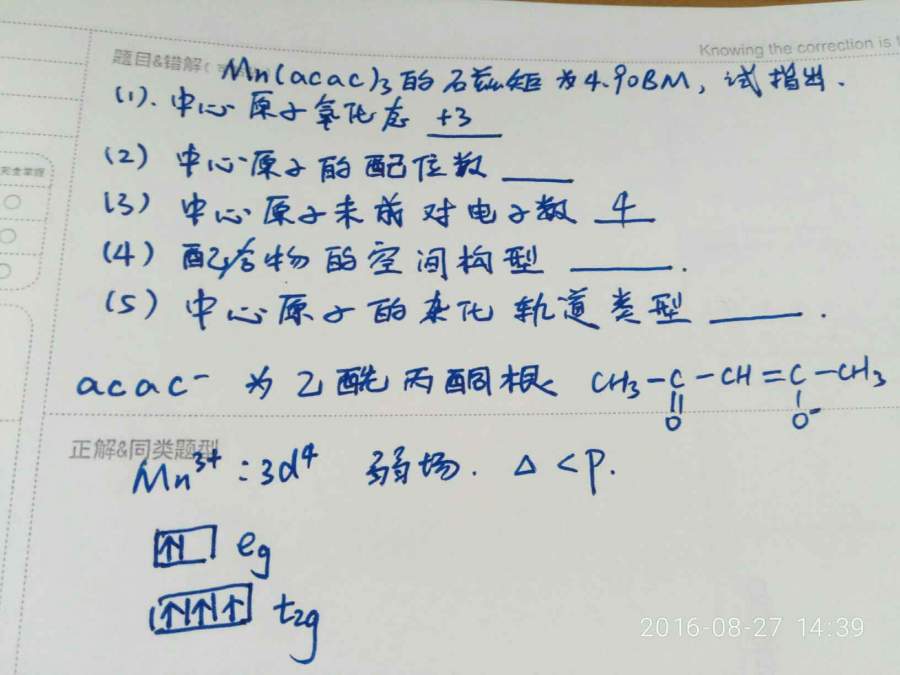 Knowing the correction is
题目&错解(
Mn(acac)₃的石磁矩为4.90BM，试指出.
(1). 中心原子氧化态 +3
(2) 中心原子的配位数 ____
(3) 中心原子未成对电子数 4
(4) 配合物的空间构型 ____.
(5) 中心原子的杂化轨道类型 ____.
完全掌握
acac⁻ 为乙酰丙酮根 CH₃-C-CH=C-CH₃
O O⁻
正解&同类题型
Mn³⁺:3d⁴ 弱场. Δ<P.
↑ eg
↑ ↑ ↑ t₂g
2016-08-27 14:39